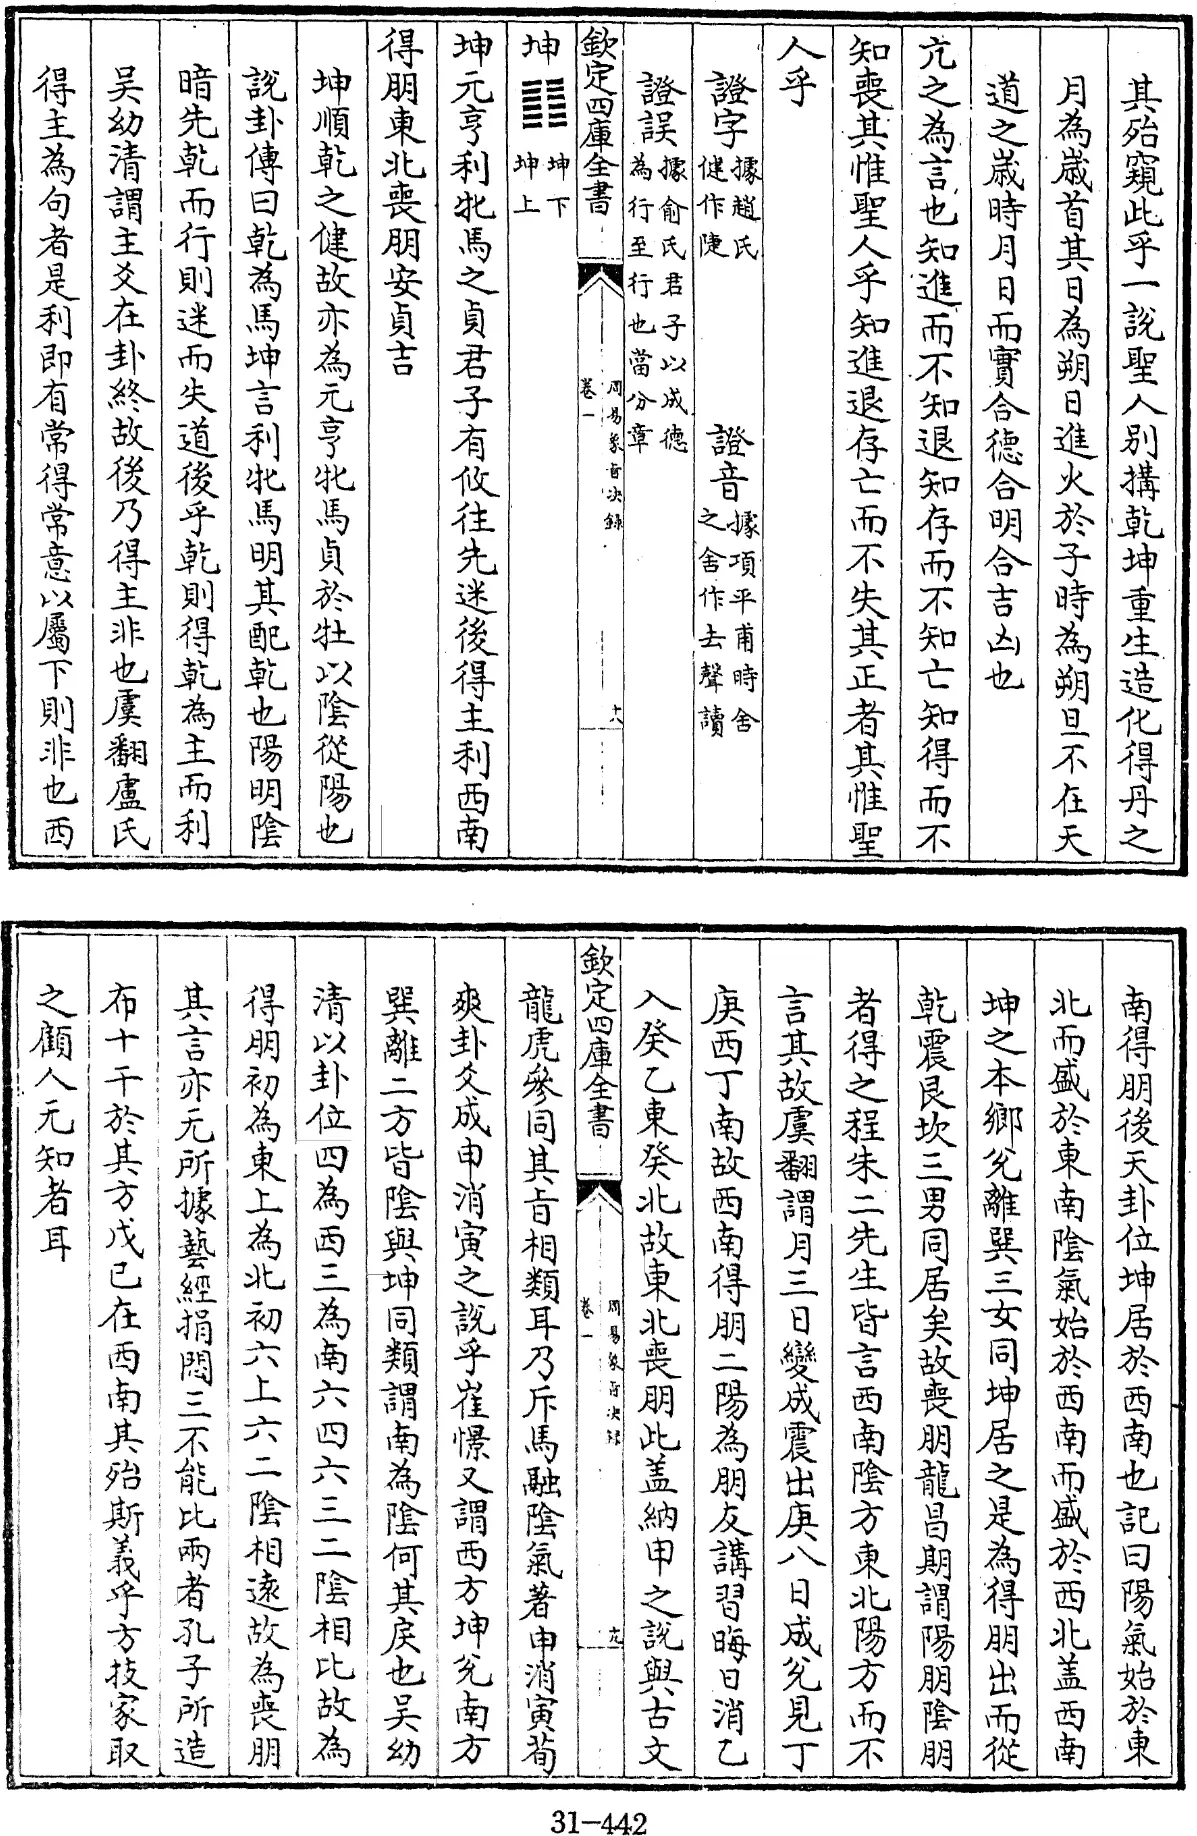 其殆窺此乎一說聖人别搆乾坤重生造化得丹之
月為嵗首其日為朔日進火於子時為朔旦不在天
道之嵗時月日而實合德合明合吉凶也
亢之為言也知進而不知退知存而不知亡知得而不
知喪其惟聖人乎知進退存亡而不失其正者其惟聖
人乎
證字據趙氏健作踕
證音據項平甫時舍之舍作去聲讀
證誤據俞氏君子以成德為行至行也當分章
欽定四庫全書
周易象旨决録
卷一
十八
坤 ䷁ 坤下坤上
坤元亨利牝馬之貞君子有攸往先迷後得主利西南
得朋東北喪朋安貞吉
坤順乾之健故亦為元亨牝馬貞於牡以陰從陽也
說卦傳曰乾為馬坤言利牝馬明其配乾也陽明陰
暗先乾而行則迷而失道後乎乾則得乾為主而利
吴幼清謂主爻在卦終故後乃得主非也虞翻盧氏
得主為句者是利即有常得常意以屬下則非也西
南得朋後天卦位坤居於西南也記曰陽氣始於東
北而盛於東南陰氣始於西南而盛於西北盖西南
坤之本鄉兊離巽三女同坤居之是為得朋出而從
乾震艮坎三男同居矣故喪朋龍昌期謂陽朋陰朋
者得之程朱二先生皆言西南陰方東北陽方而不
言其故虞翻謂月三日變成震出庚八日成兊見丁
庚西丁南故西南得朋二陽為朋友講習晦日消乙
入癸乙東癸北故東北喪朋此盖納甲之說與古文
欽定四庫全書
周易象旨决録
卷一
十九
龍虎參同其旨相類耳乃斥馬融陰氣著申消寅荀
爽卦爻成申消寅之說乎崔憬又謂西方坤兊南方
巽離二方皆陰與坤同類謂南為陰何其戾也吴幼
清以卦位四為西三為南六四六三二陰相比故為
得朋初為東上為北初六上六二陰相逺故為喪朋
其言亦无所據藝經捐悶三不能比兩者孔子所造
布十干於其方戊己在西南其殆斯義乎方技家取
之顧人无知者耳
31-442